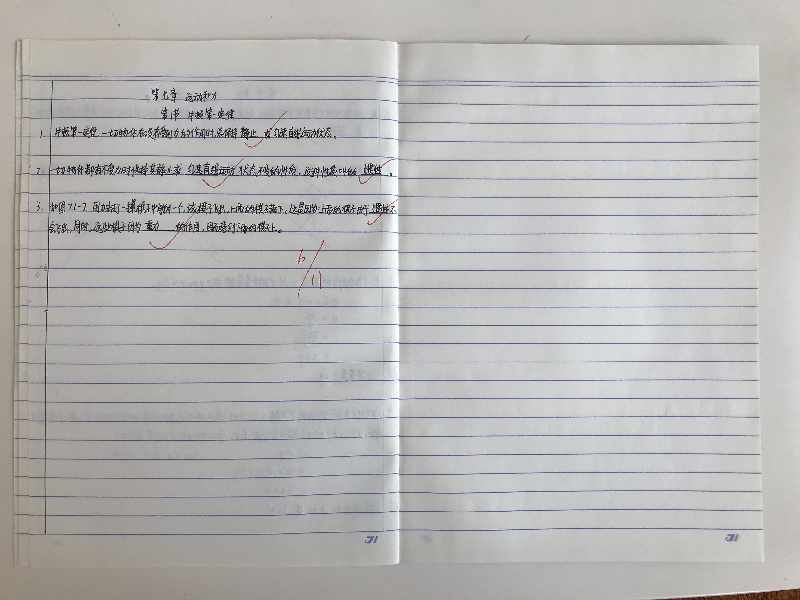 第七章 运动和力
第1节 牛顿第一定律
1. 牛顿第一定律 一切物体在没有受到力的作用时,总保持 静止 或 匀速直线运动状态。
2. 一切物体都有在不受力时保持其静止或 匀速直线运动 状态不变的性质,这种性质叫做 惯性 。
3. 如图7.1-7 用力击打一摞棋子中间的一个,该棋子飞出,上面的棋子落下,这是因为上面的棋子由于 惯性不
会飞出,同时,这些棋子因为 重力 的作用,因而落到下面的棋子上。
11